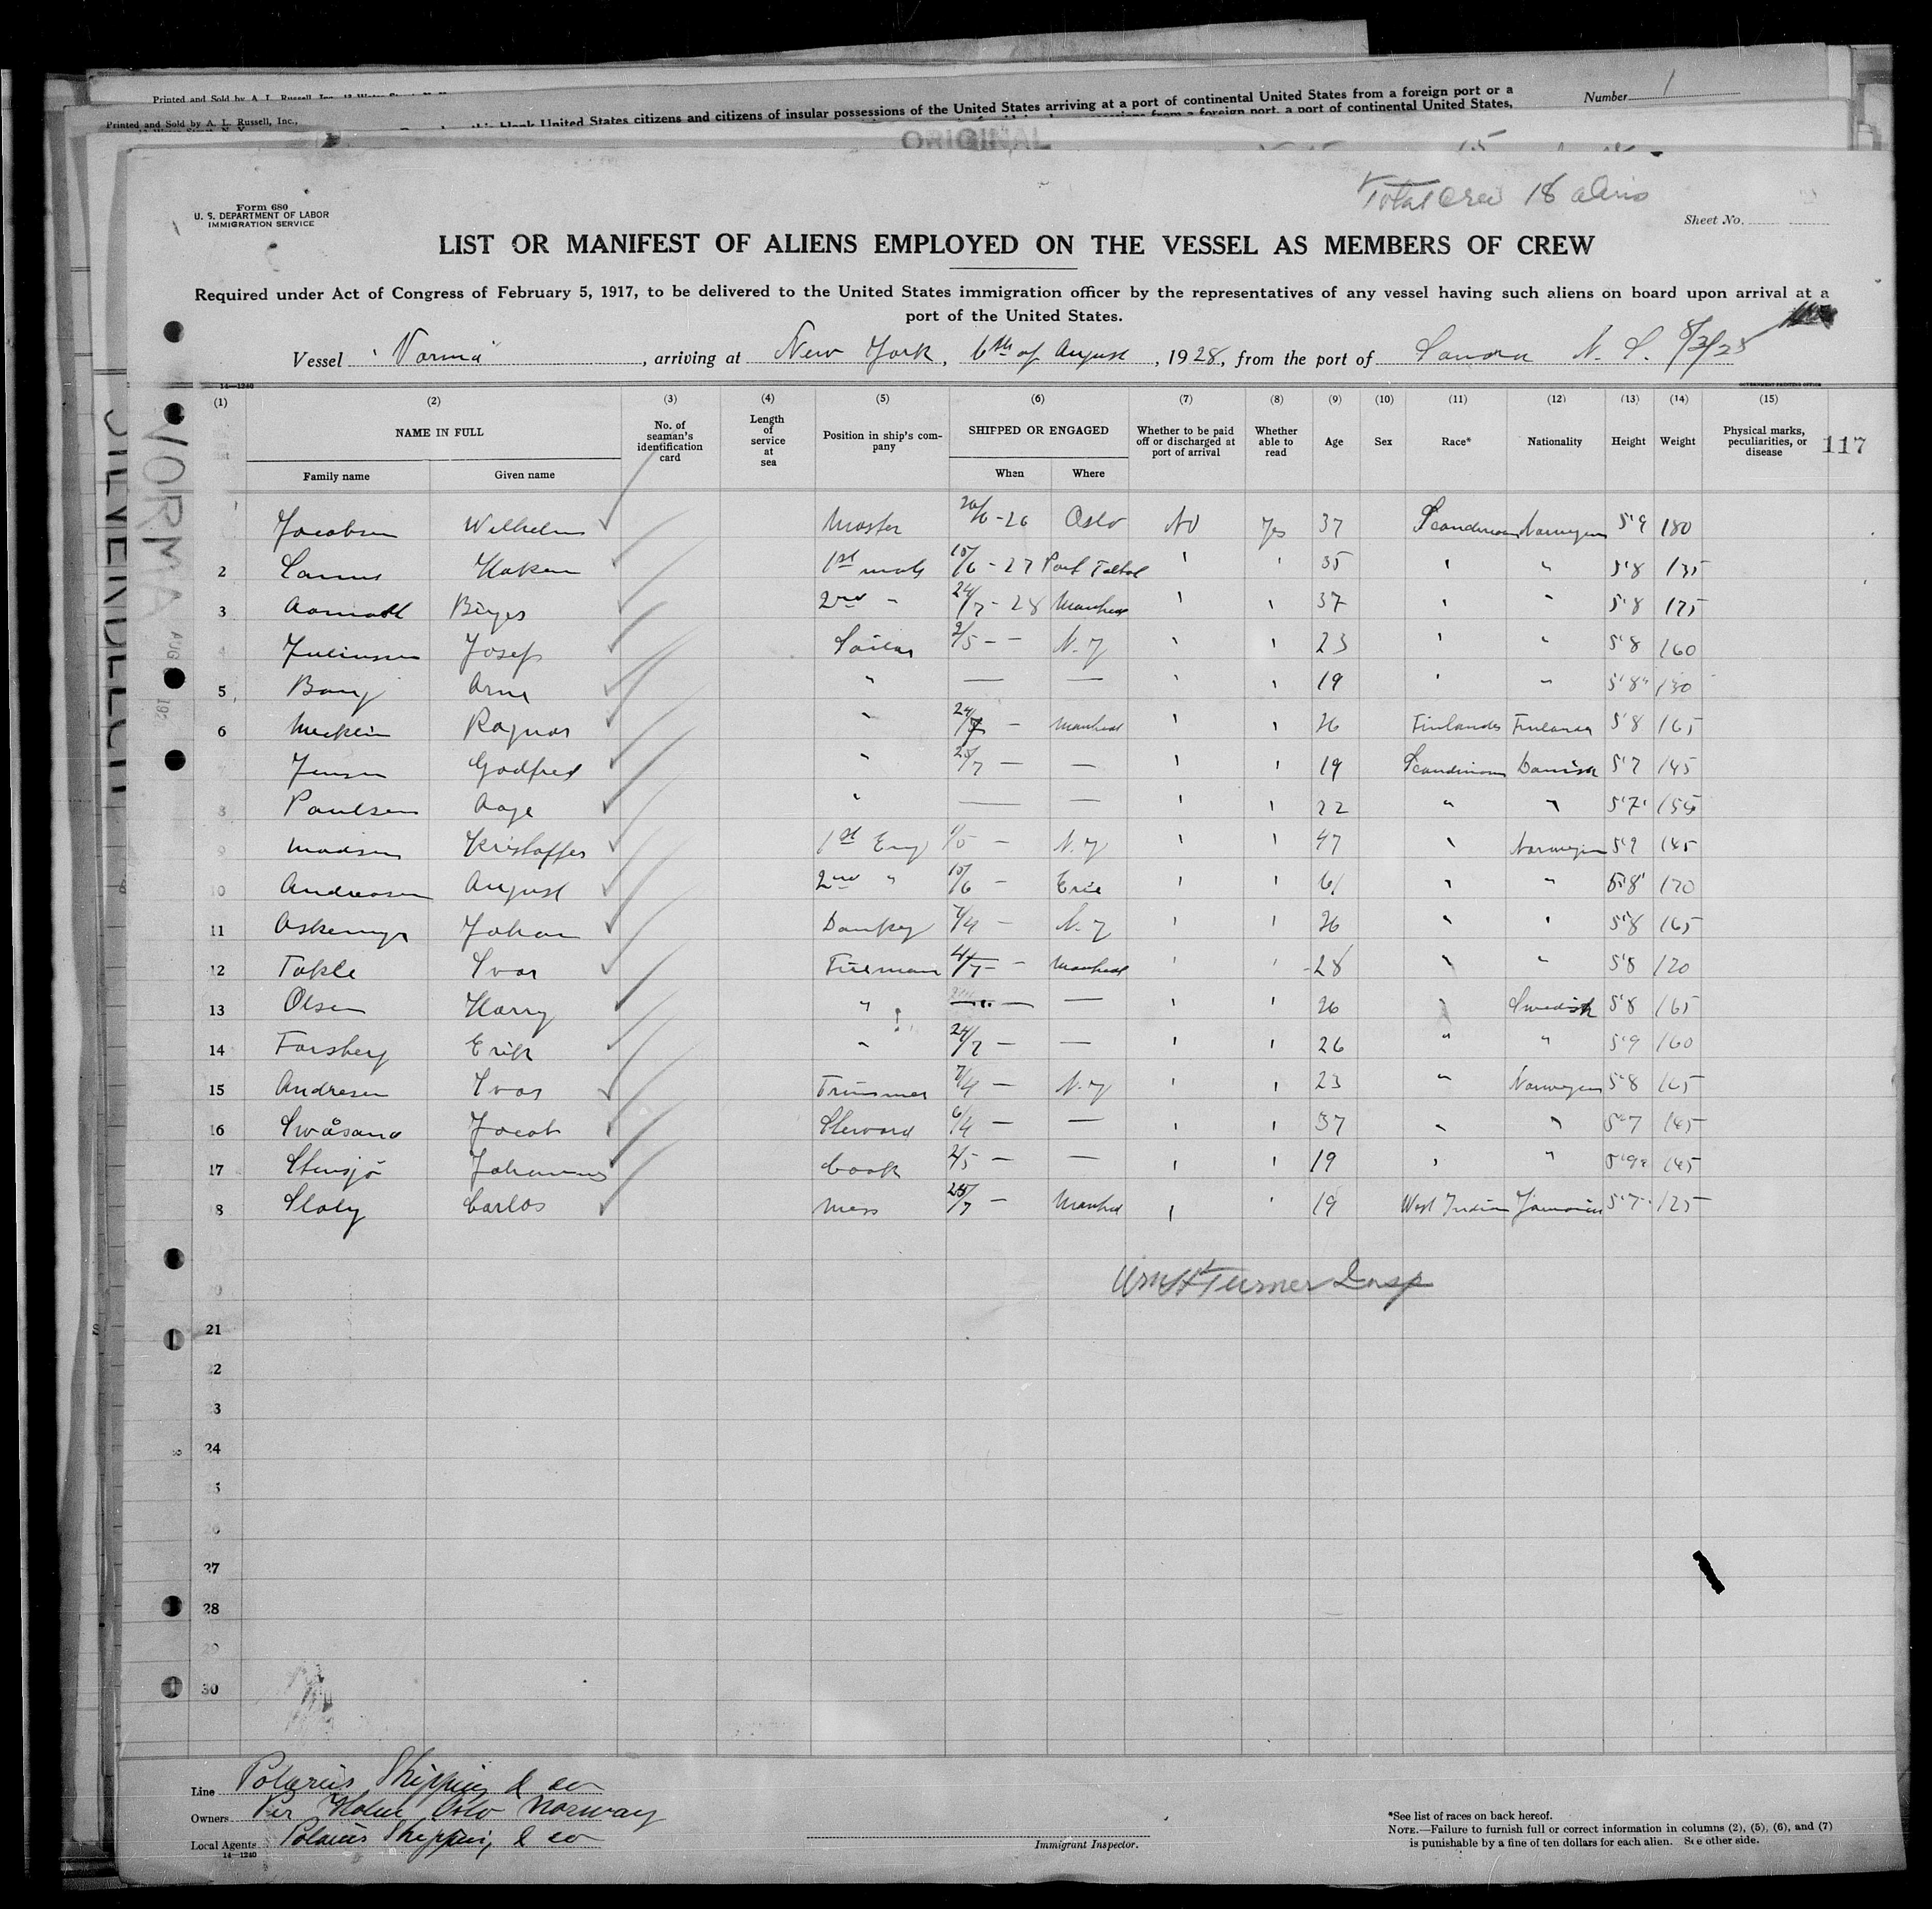 Printed and Sold by A. L. Russell, Inc.
United States citizens and citizens of insular possessions of the United States arriving at a port of continental United States from a foreign port or a
Number 1
Printed and Sold by A. L. Russell, Inc.,
ORIGINAL
Total Crew 18 aliens
Form 680
U. S. DEPARTMENT OF LABOR
IMMIGRATION SERVICE
Sheet No.
LIST OR MANIFEST OF ALIENS EMPLOYED ON THE VESSEL AS MEMBERS OF CREW
Required under Act of Congress of February 5, 1917, to be delivered to the United States immigration officer by the representatives of any vessel having such aliens on board upon arrival at a
port of the United States.
Vessel "Vorma", arriving at New York, 6th of August, 1928, from the port of N. S.
14—1240
GOVERNMENT PRINTING OFFICE
(1) (2) (3) (4) (5) (6) (7) (8) (9) (10) (11) (12) (13) (14) (15)
NAME IN FULL
Family name Given name
No. of seaman's identification card
Length of service at sea
Position in ship's company
SHIPPED OR ENGAGED
When Where
Whether to be paid off or discharged at port of arrival
Whether able to read
Age Sex Race* Nationality Height Weight
Physical marks, peculiarities, or disease
117
VORMA
AUG
Jacobsen Wilhelm Master Oslo No Yes 37 Scandinavian Norwegian 5'9 180
2 Haken 1st mate 15/6 - 27 Port Talbot " " 35 " " 5'8 135
3 Birger 2nd " 24/7 - 28 " " 37 " " 5'8 175
4 Josef Sailor 2/5 - - N.Y " " 23 " " 5'8 160
5 Arne " — — " " 19 " " 5'8" 130
6 Ragnar " — " " 26 Finlander Finlander 5'8 165
Jensen Godfred " 25/7 — — " " 19 Scandinavian Danish 5'7 145
8 Paulsen Aage " — — " " 22 " " 5'7"
9 Madsen Kristoffer 1st Eng 1/5 — N.Y " " 47 " Norwegian 5'9 145
10 Andreasen August 2nd " 15/6 — Erie " " 61 " " 5'8" 170
11 Johan Donkey 7/4 — N.Y " " 26 " " 5'8 165
12 Takle Ivar Fireman - " " 28 " " 5'8 170
13 Olsen Harry " — " " 26 " Swedish 5'8 165
14 Forsberg Erik " 24/7 — — " " 26 " " 5'9 160
15 Andresen Ivar Trimmer 7/4 — N.Y " " 23 " Norwegian 5'8 165
16 Swåsand Jacob Steward 6/4 — — " " 37 " " 5'7 145
17 Stensjö Johannes Cook 2/5 — — " " 19 " " 145
18 Carlos Mess 25/7 — " " 19 West Indian Jamaican 5'7" 125
Wm H Turner Insp
20
21
22
23
24
25
26
27
28
29
30
Line Polarius Shipping & co
Owners Per Holm Oslo Norway
Local Agents Polarius Shipping & co
14—1240
Immigrant Inspector.
*See list of races on back hereof.
NOTE.—Failure to furnish full or correct information in columns (2), (5), (6), and (7)
is punishable by a fine of ten dollars for each alien. See other side.